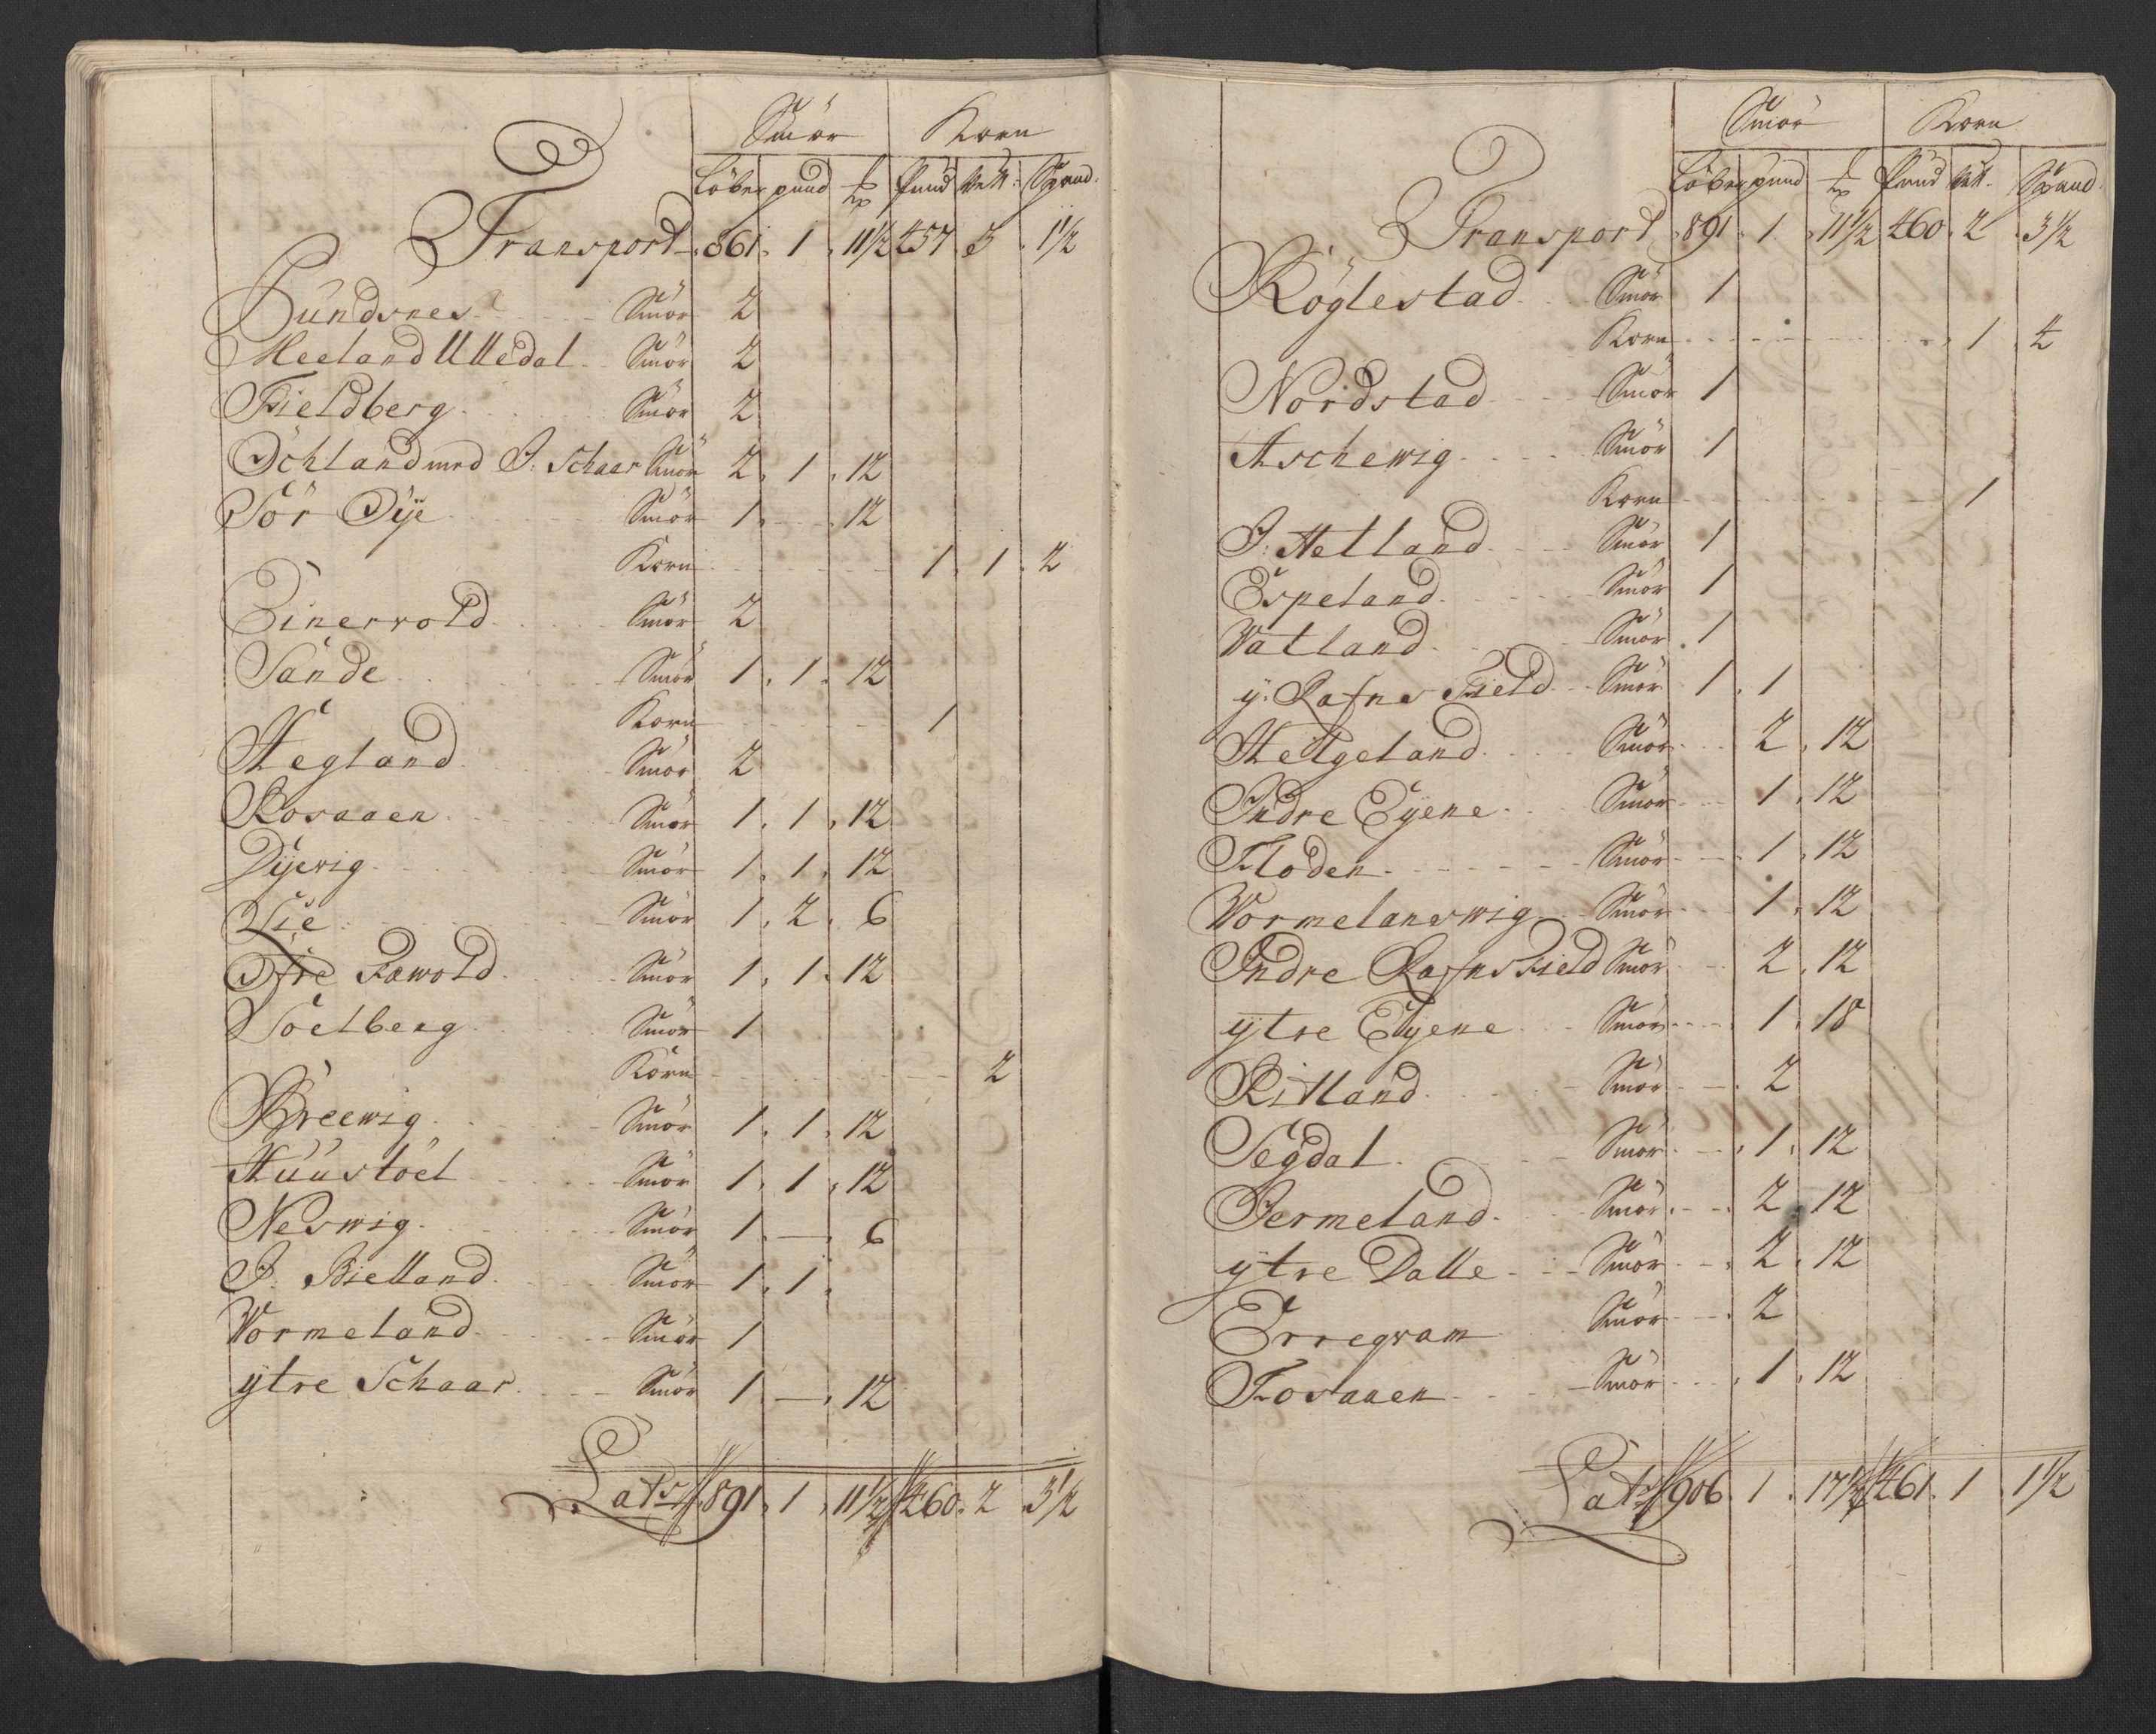 Smör Korn
Löber pund ℔ Pund Vett: Spand.
Transport 861. 1. 11½ 457. 3. 1½
Hundsnes Smör 2
Meeland Ulledal Smör 2
Fieldberg Smör 2
Öchland med I: Schaar Smör 2. 1. 12
Sör Öÿe Smör 1. — . 12
Korn 1. 1. 2
Einervold Smör 2
Sande Smör 1. 1. 12
Korn 1
Hegland Smör 2
Rosaaen Smör 1. 1. 12
Dÿevig Smör 1. 1. 12
Lie Smör 1. 2. 6
Öfre Sawold Smör 1. 1. 12
Soelberg Smör 1
Korn 2
Breewig Smör 1. 1. 12
Huustoel Smör 1. 1. 12
Neswig Smör 1. — . 6
I. Bielland Smör 1. 1.
Vormeland Smör 1
ÿtre Schaar Smör 1. — . 12
Lats 891. 1. 11½ 460. 2. 3½
Smör Korn
Löber pund ℔ Pund Vett. Spand.
Transport 891. 1. 11½ 460. 2. 3½
Röglestad Smör 1
Korn 1. 4
Nordstad Smör 1
Aschewig Smör 1
Korn 1
I: Helland Smör 1
Espeland Smör 1
Watland Smör 1
ÿ. Rafns Field Smör 1. 1
Helgeland Smör 2. 12
Indre Eÿene Smör 1. 12
Floden Smör 1. 12
Vormelanswig Smör 1. 12
Indre Rafns Field Smör 2. 12
ÿtre Eÿene Smör 1. 18
Ritland Smör 2
Segdal Smör 1. 12
Iermeland Smör 2. 12
ÿtre Dalle Smör 2. 12
Erregvam Smör 2
Fosaaen Smör 1. 12
Lats 906. 1. 17½ 461. 1. 1½